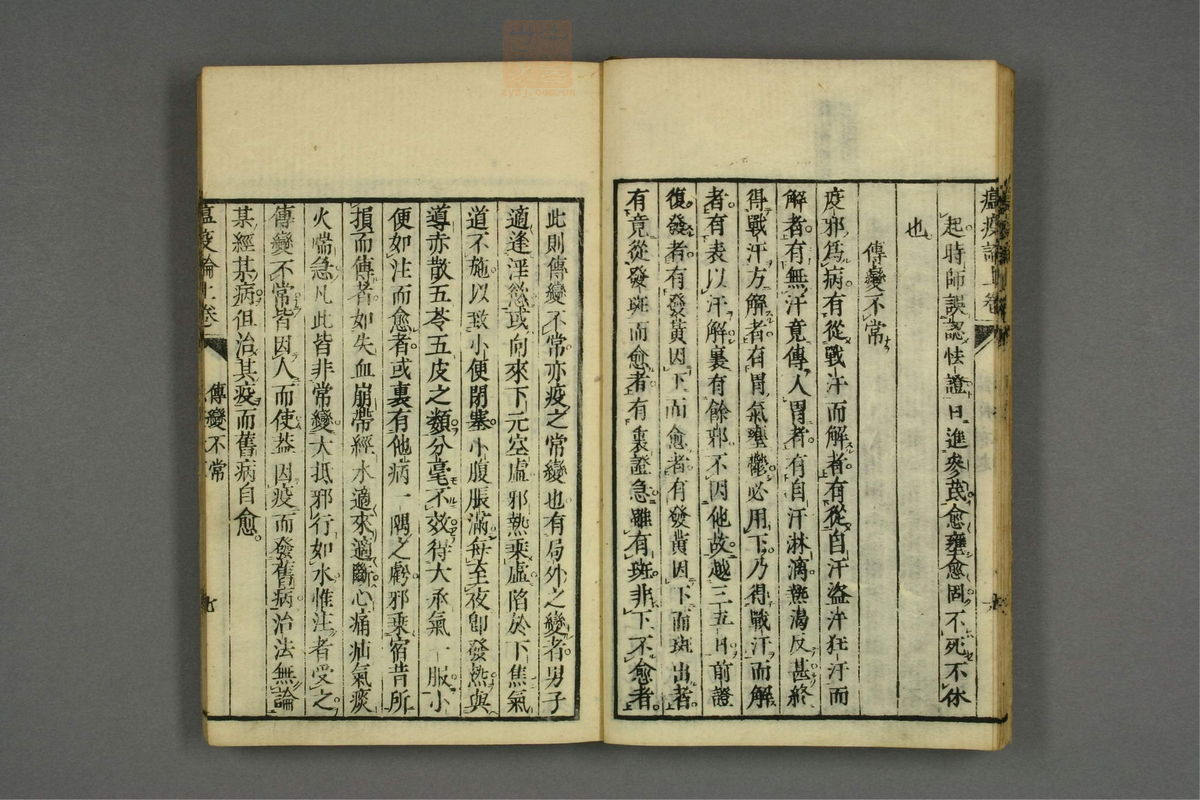 瘟疫論上卷
起時師誤認怯證日進參茋愈壅愈固不死不休
也
傳變不常
疫邪爲病有從戰汗而解者有從自汗盜汗狂汗而
解者有無汗竟傳入胃者有自汗淋漓熱渴反甚終
得戰汗方解者有胃氣壅鬱必用下乃得戰汗而解
者有表以汗解裏有餘邪不因他故越三五日前證
復發者有發黃因下而愈者有發黃因下而斑出者
有竟從發斑而愈者有裏證急雖有斑非下不愈者
此則傳變不常亦疫之常變也有局外之變者男子
適逢淫慾或向來下元空虛邪熱乘虛陷於下焦氣
道不施以致小便閉塞小腹脹滿每至夜卽發熱與
導赤散五苓五皮之類分毫不效得大承氣一服小
便如注而愈者或裏有他病一隅之虧邪乘宿昔所
損而傳者如失血崩帶經水適來適斷心痛疝氣痰
火喘急凡此皆非常變大抵邪行如水惟注者受之
傳變不常皆因人而使葢因疫而發舊病治法無論
某經某病但治其疫而舊病自愈
瘟疫論上卷
傳變不常
七